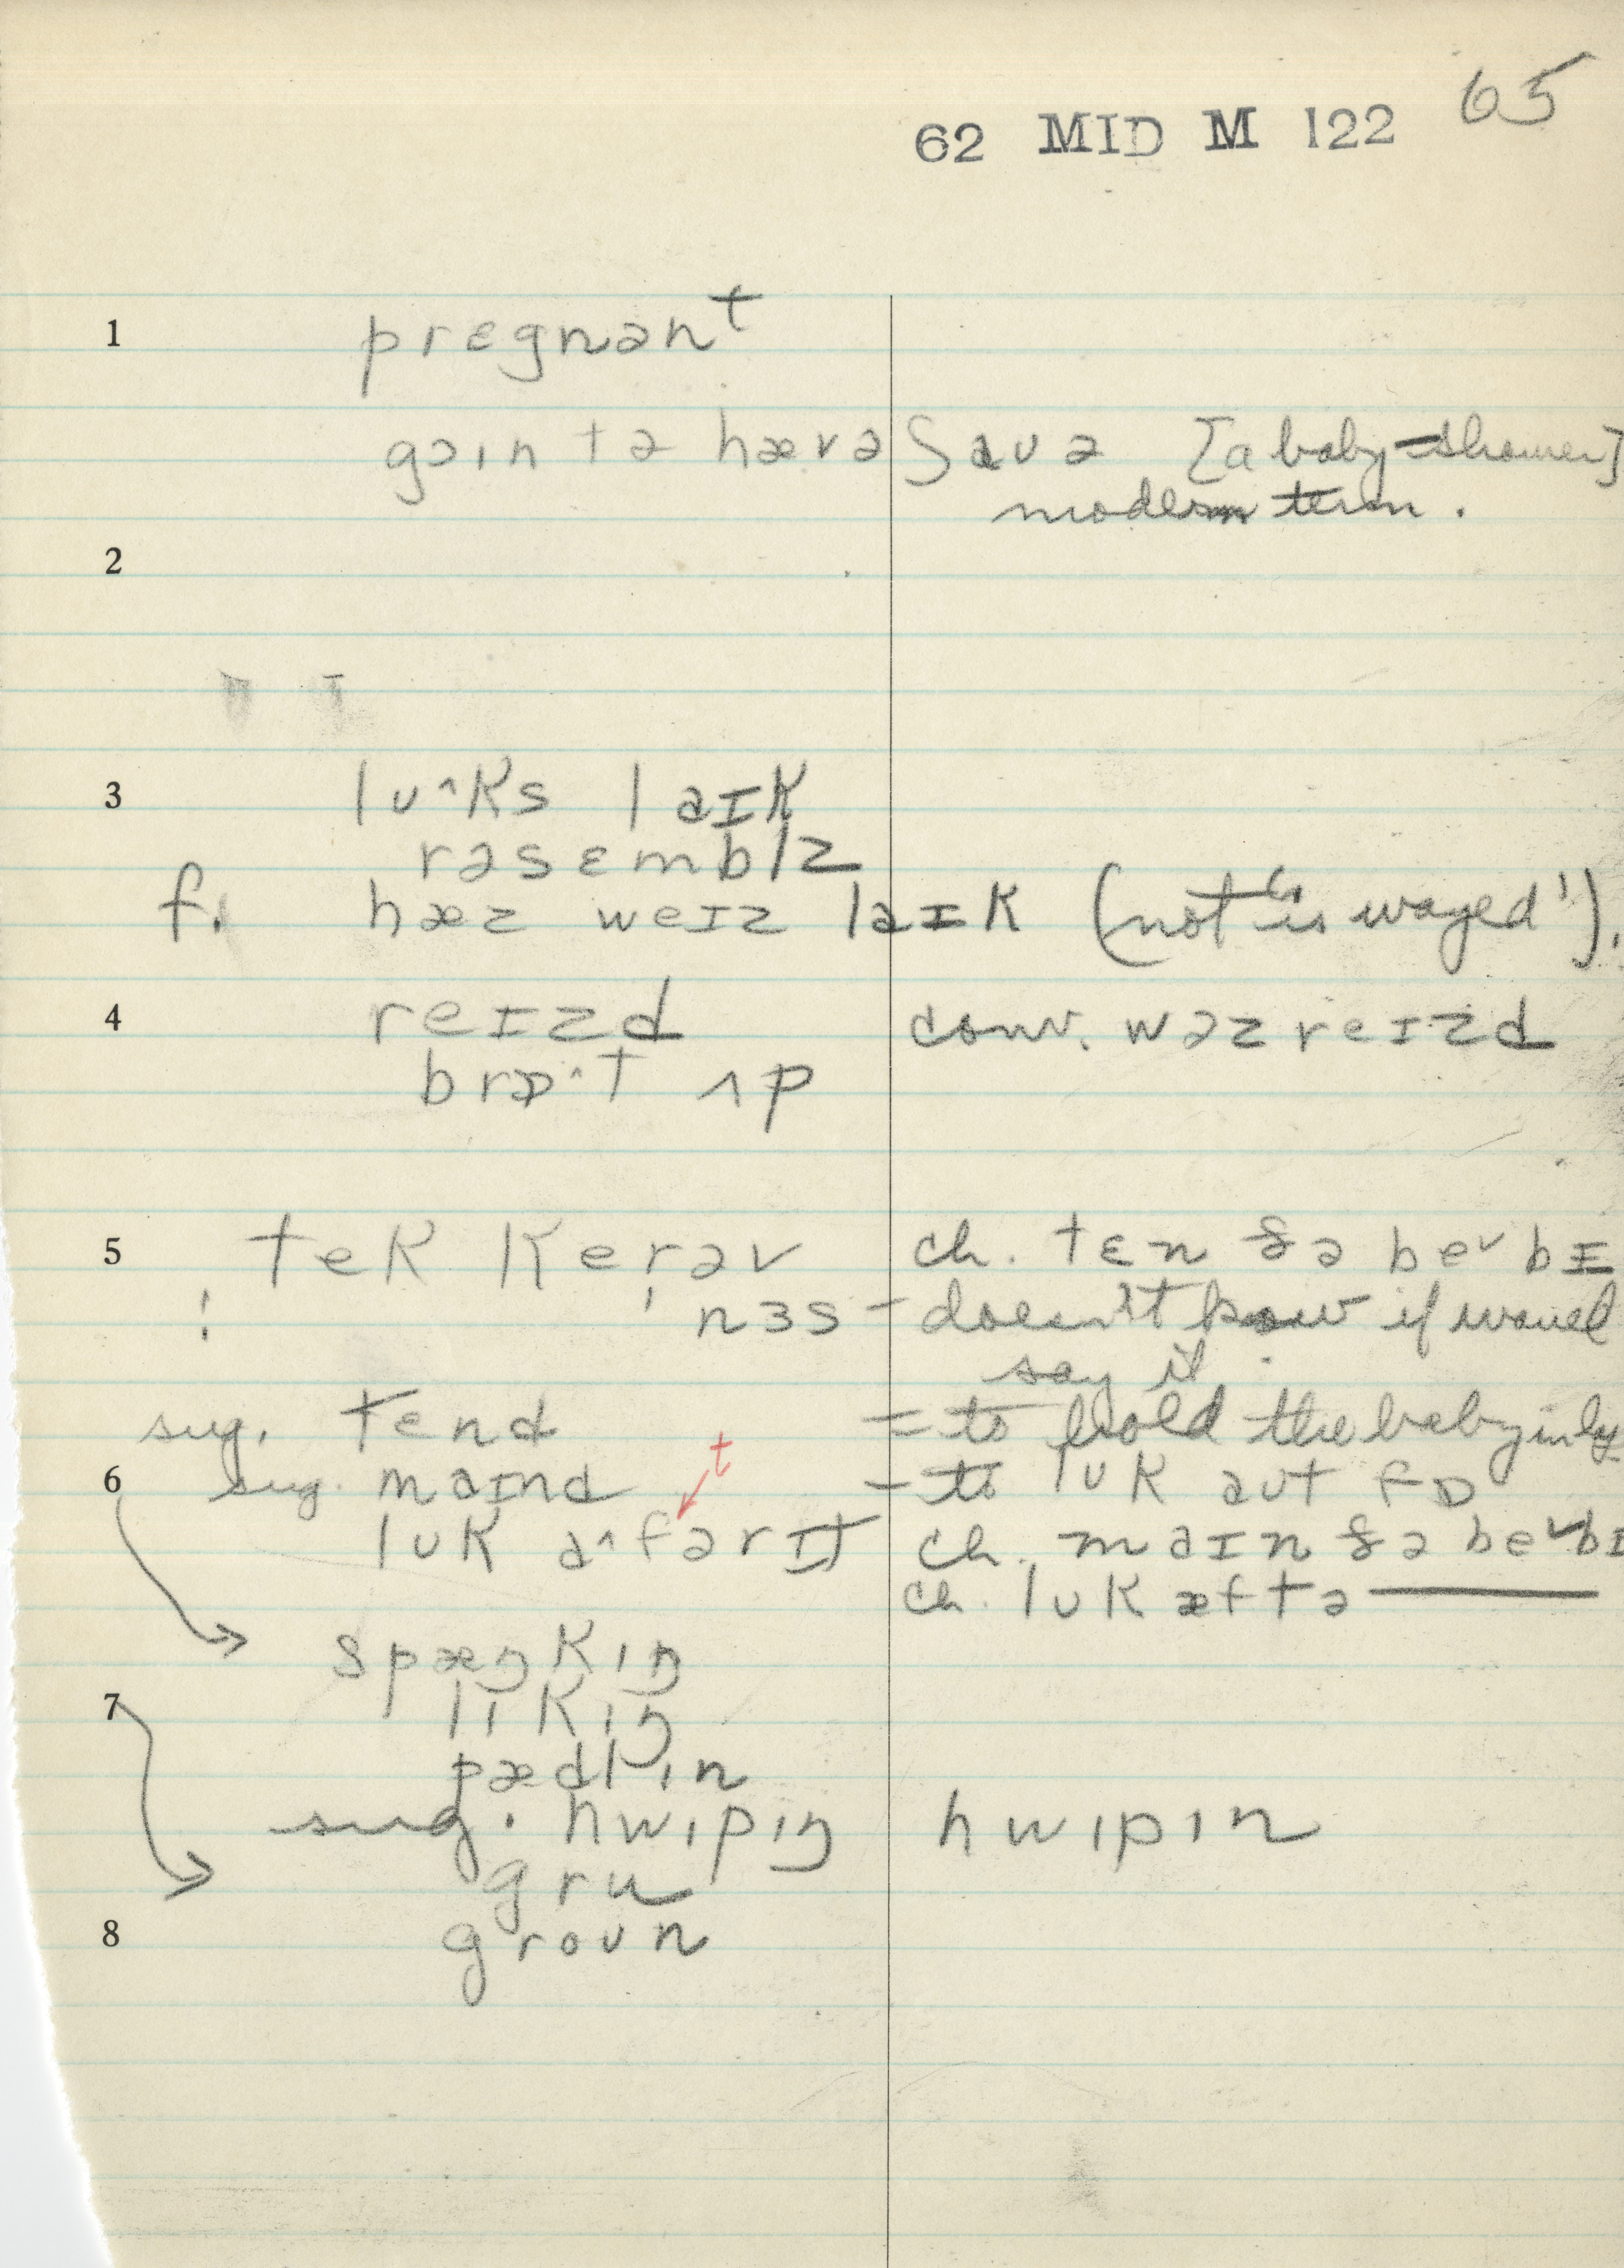 62 MID M 122 65
1 prɛgnənᵗ
goɪn tə hævə ʃaʊə [a baby-shower]
modern term.
2
3 lʊ^ks laɪk
rəsɛmblz
f. hæz weɪz laɪk (not "is wayed").
4 reɪzd conv. wəz reɪzd
brɒ^·t ʌp
5 tek kerəv ch. tɛn ðə beᵛbɪ
! nɜs – doesn't know if would
say it.
sug. tend = to hold the baby in lap
6 sug. maɪnd – to lʊk aʊt fɒ
t
lʊk a^fərɪt ch. maɪn ðə beᵛbɪ
ch. lʊk æftə ———
spæŋkɪŋ
7 lɪkɪŋ
pædlɪn
sug. hwɪpɪŋ hwɪpɪn
gru
8 groʊn